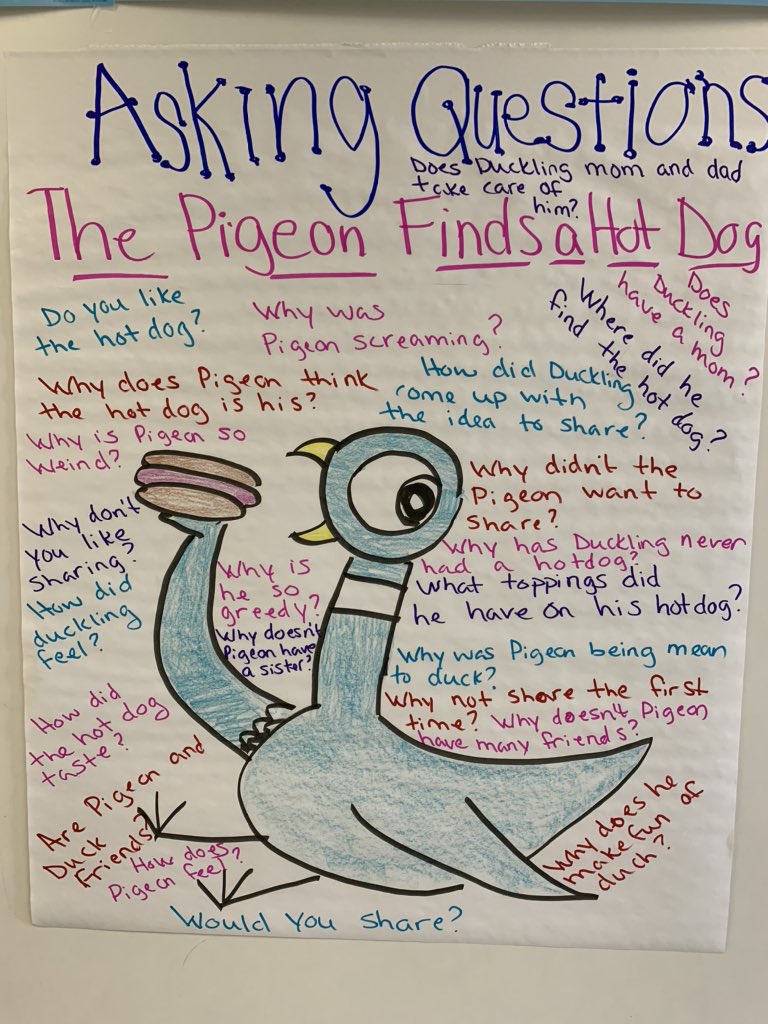 Asking Questions
Does Duckling mom and dad
take care of
him?
The Pigeon Finds a Hot Dog
Do you like
the hot dog?
Why was
Pigeon screaming?
Where did he
find the hot dog?
Does
Duckling
have a mom?
Why does Pigeon think
the hot dog is his?
How did Duckling
come up with
the idea to share?
Why is Pigeon so
weird?
Why didn't the
Pigeon want to
share?
Why don't
you like
sharing?
Why has Duckling never
had a hotdog?
What toppings did
he have on his hotdog?
How did
duckling
feel?
Why is
he so
greedy?
Why doesn't
Pigeon have
a sister?
Why was Pigeon being mean
to duck?
Why not share the first
time?
Why doesn't Pigeon
have many friends?
How did
the hot dog
taste?
Are Pigeon and
Duck
Friends?
How does
Pigeon feel?
Why does he
make fun of
duck?
Would you share?